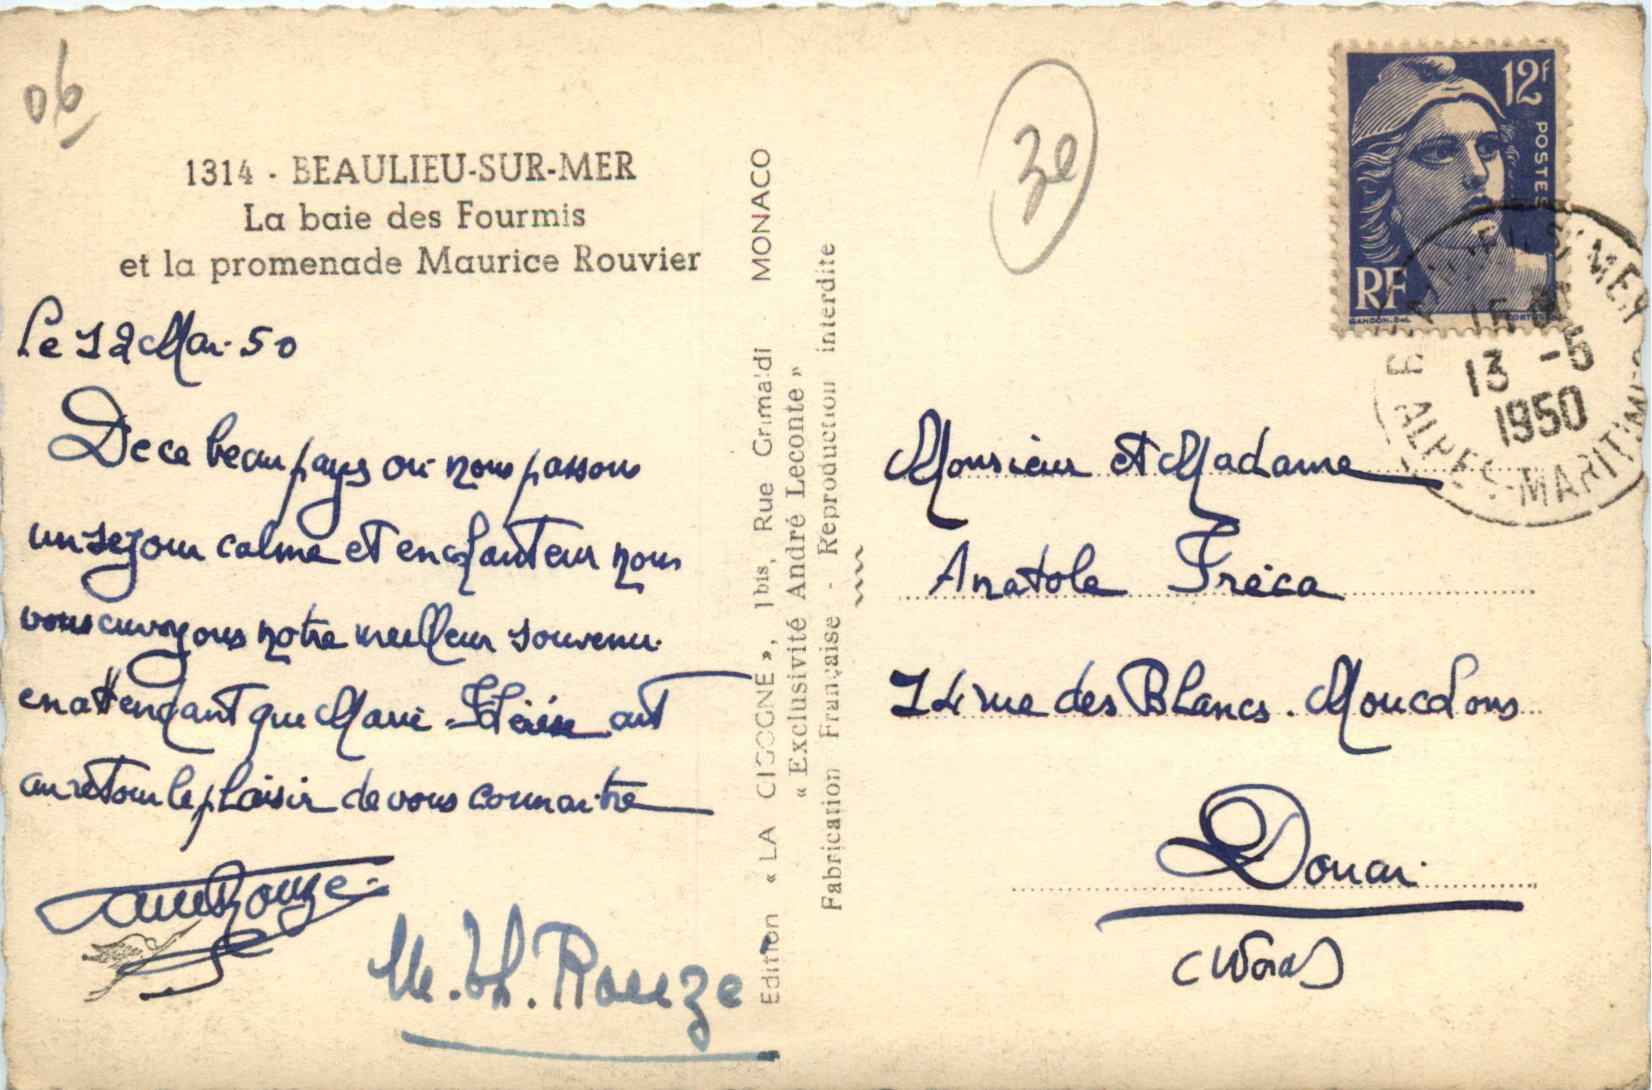 06
1314 - BEAULIEU-SUR-MER
La baie des Fourmis
et la promenade Maurice Rouvier
Le 12 Mai 50
De ce beau pays où nous passons
un séjour calme et enchanteur nous
vous envoyons notre meilleur souvenir
en attendant que Marie-Thérèse ait
au retour le plaisir de vous connaitre
Rouze
M. Th. Rouze
Edition « LA CIGOGNE », 1bis, Rue Grimaldi MONACO
« Exclusivité André Leconte »
Fabrication Française - Reproduction interdite
12F
POSTES
RF
GANDON.Del.
BEAULIEU S/ MER
13 - 5
1950
ALPES-MARITIMES
Monsieur et Madame
Anatole Fréca
14 rue des Blancs-Mouchons
Douai
(Nord)